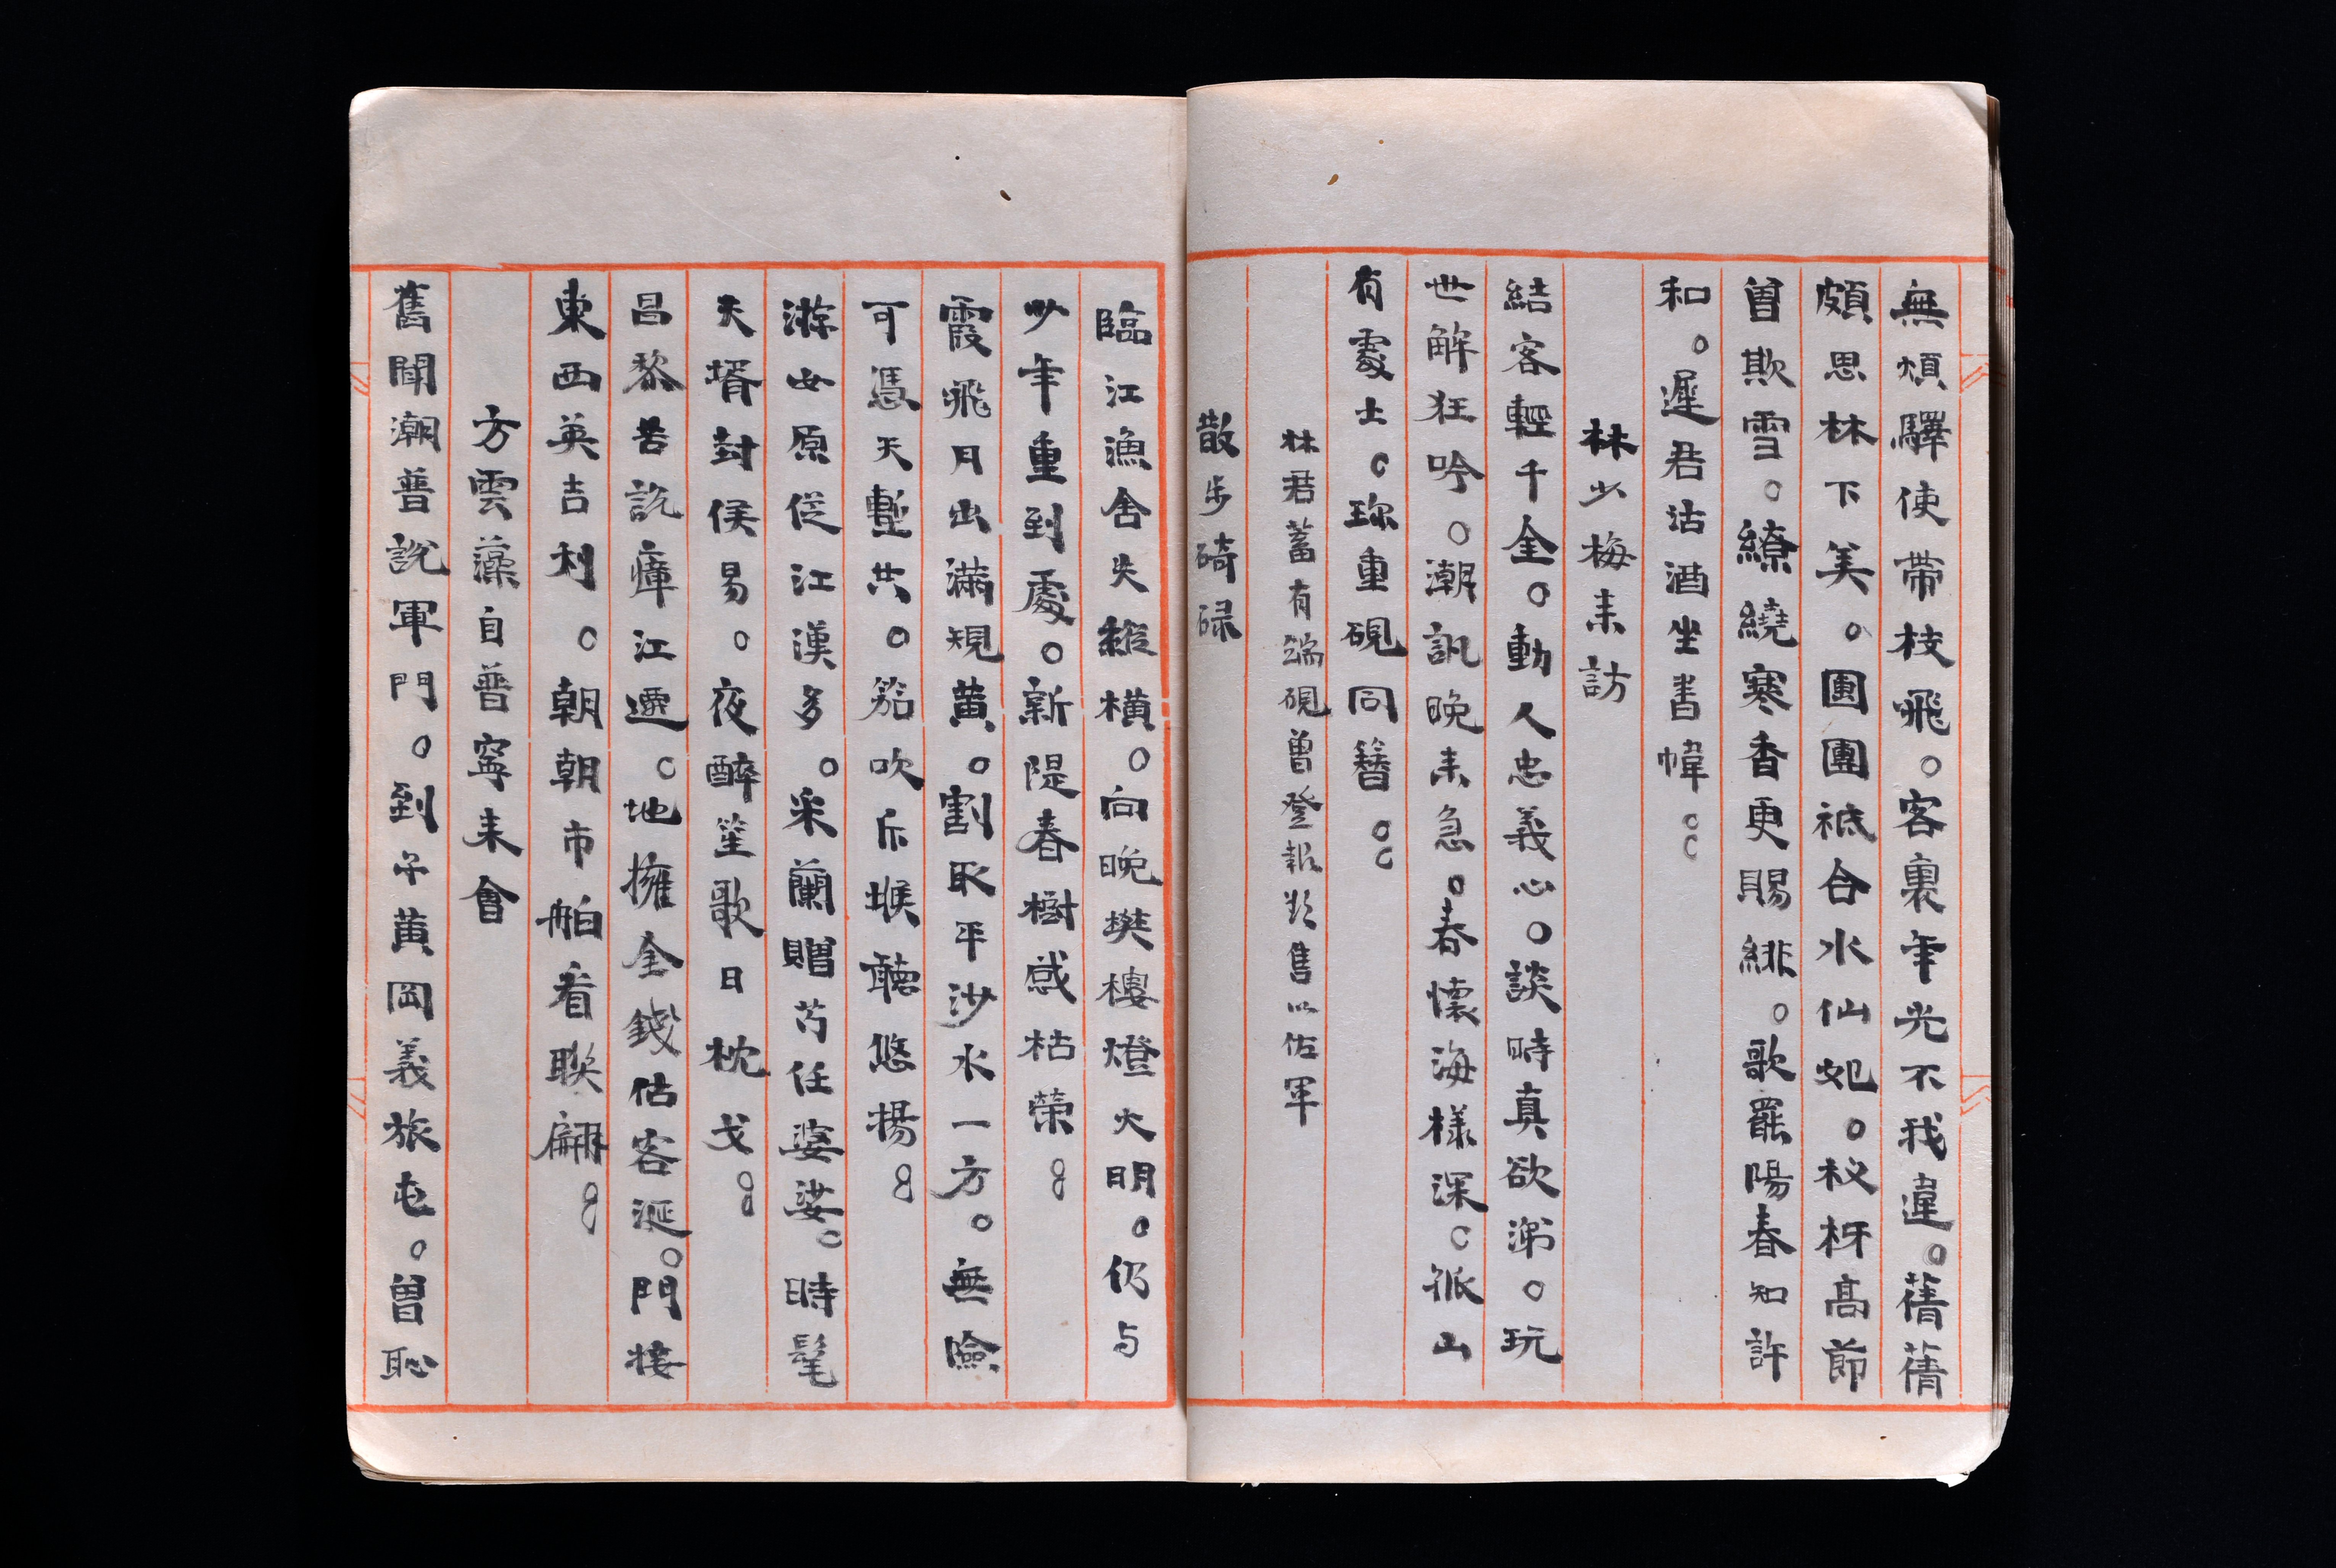 無煩驛使帶枝飛。客裏年光不我違。蒨蒨
頗思林下美。團團祗合水仙妃。杈枒高節
曾欺雪。繚繞寒香更賜緋。歌罷陽春知許
和。遲君沽酒坐書幃。。
林少梅来訪
結客輕千金。動人忠義心。談時真欲涕。玩
世解狂吟。潮訊晚来急。春懷海樣深。孤山
有處士。珍重硯同簪。。
林君蓄有端硯曾登報欵售以佐軍
散步碕碌
臨江漁舍失縱橫。向晚樊樓燈火明。仍与
少年重到處。新隄春樹感枯榮。。
霞飛月出滿規黄。割取平沙水一方。無險
可憑天塹共。笳吹斥堠聽悠揚。。
游女原從江漢多。采蘭贈芍任婆娑。時髦
夫壻封侯易。夜醉笙歌日枕戈。。
昌黎苦説瘴江邊。地擁金錢估客涎。門接
東西英吉利。朝朝市舶看聯翩。。
方雲藻自普寧来會
舊聞潮普說軍門。到今黄岡義旅屯。曾恥